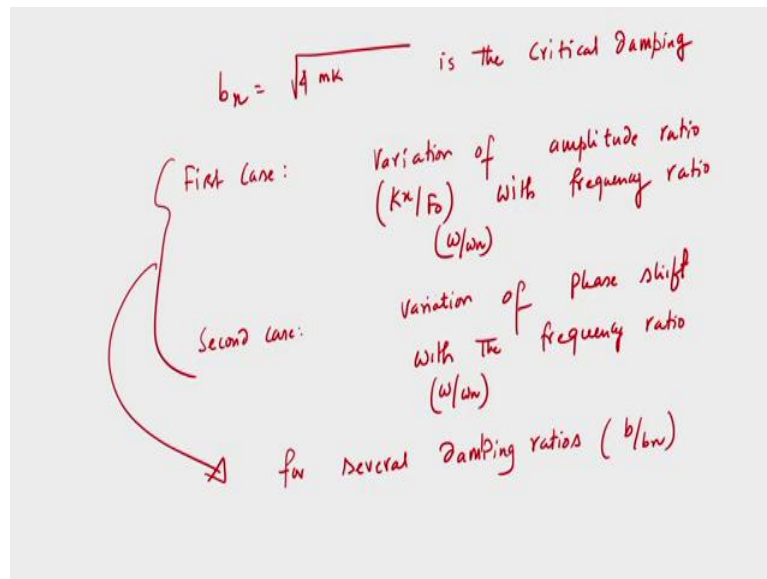 bn = √4 mK is the critical damping
First Case: Variation of amplitude ratio
(Kx/F0) with frequency ratio
(ω/ωn)
Second case: Variation of Phase shift
with The frequency ratio
(ω/ωn)
for several damping ratios (b/bn)